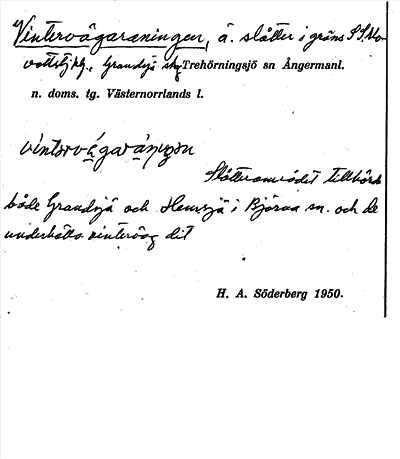 Vintervägaräningen, ä. slåtter i gräns S
Grundsjö Trehörningsjö sn Ångermanl.
n. doms. tg. Västernorrlands l.
Slåtterområdet tillhörde
både Grundsjö och Hemsjö i Björna sn. och de
underhöllo vinterväg dit
H. A. Söderberg 1950.